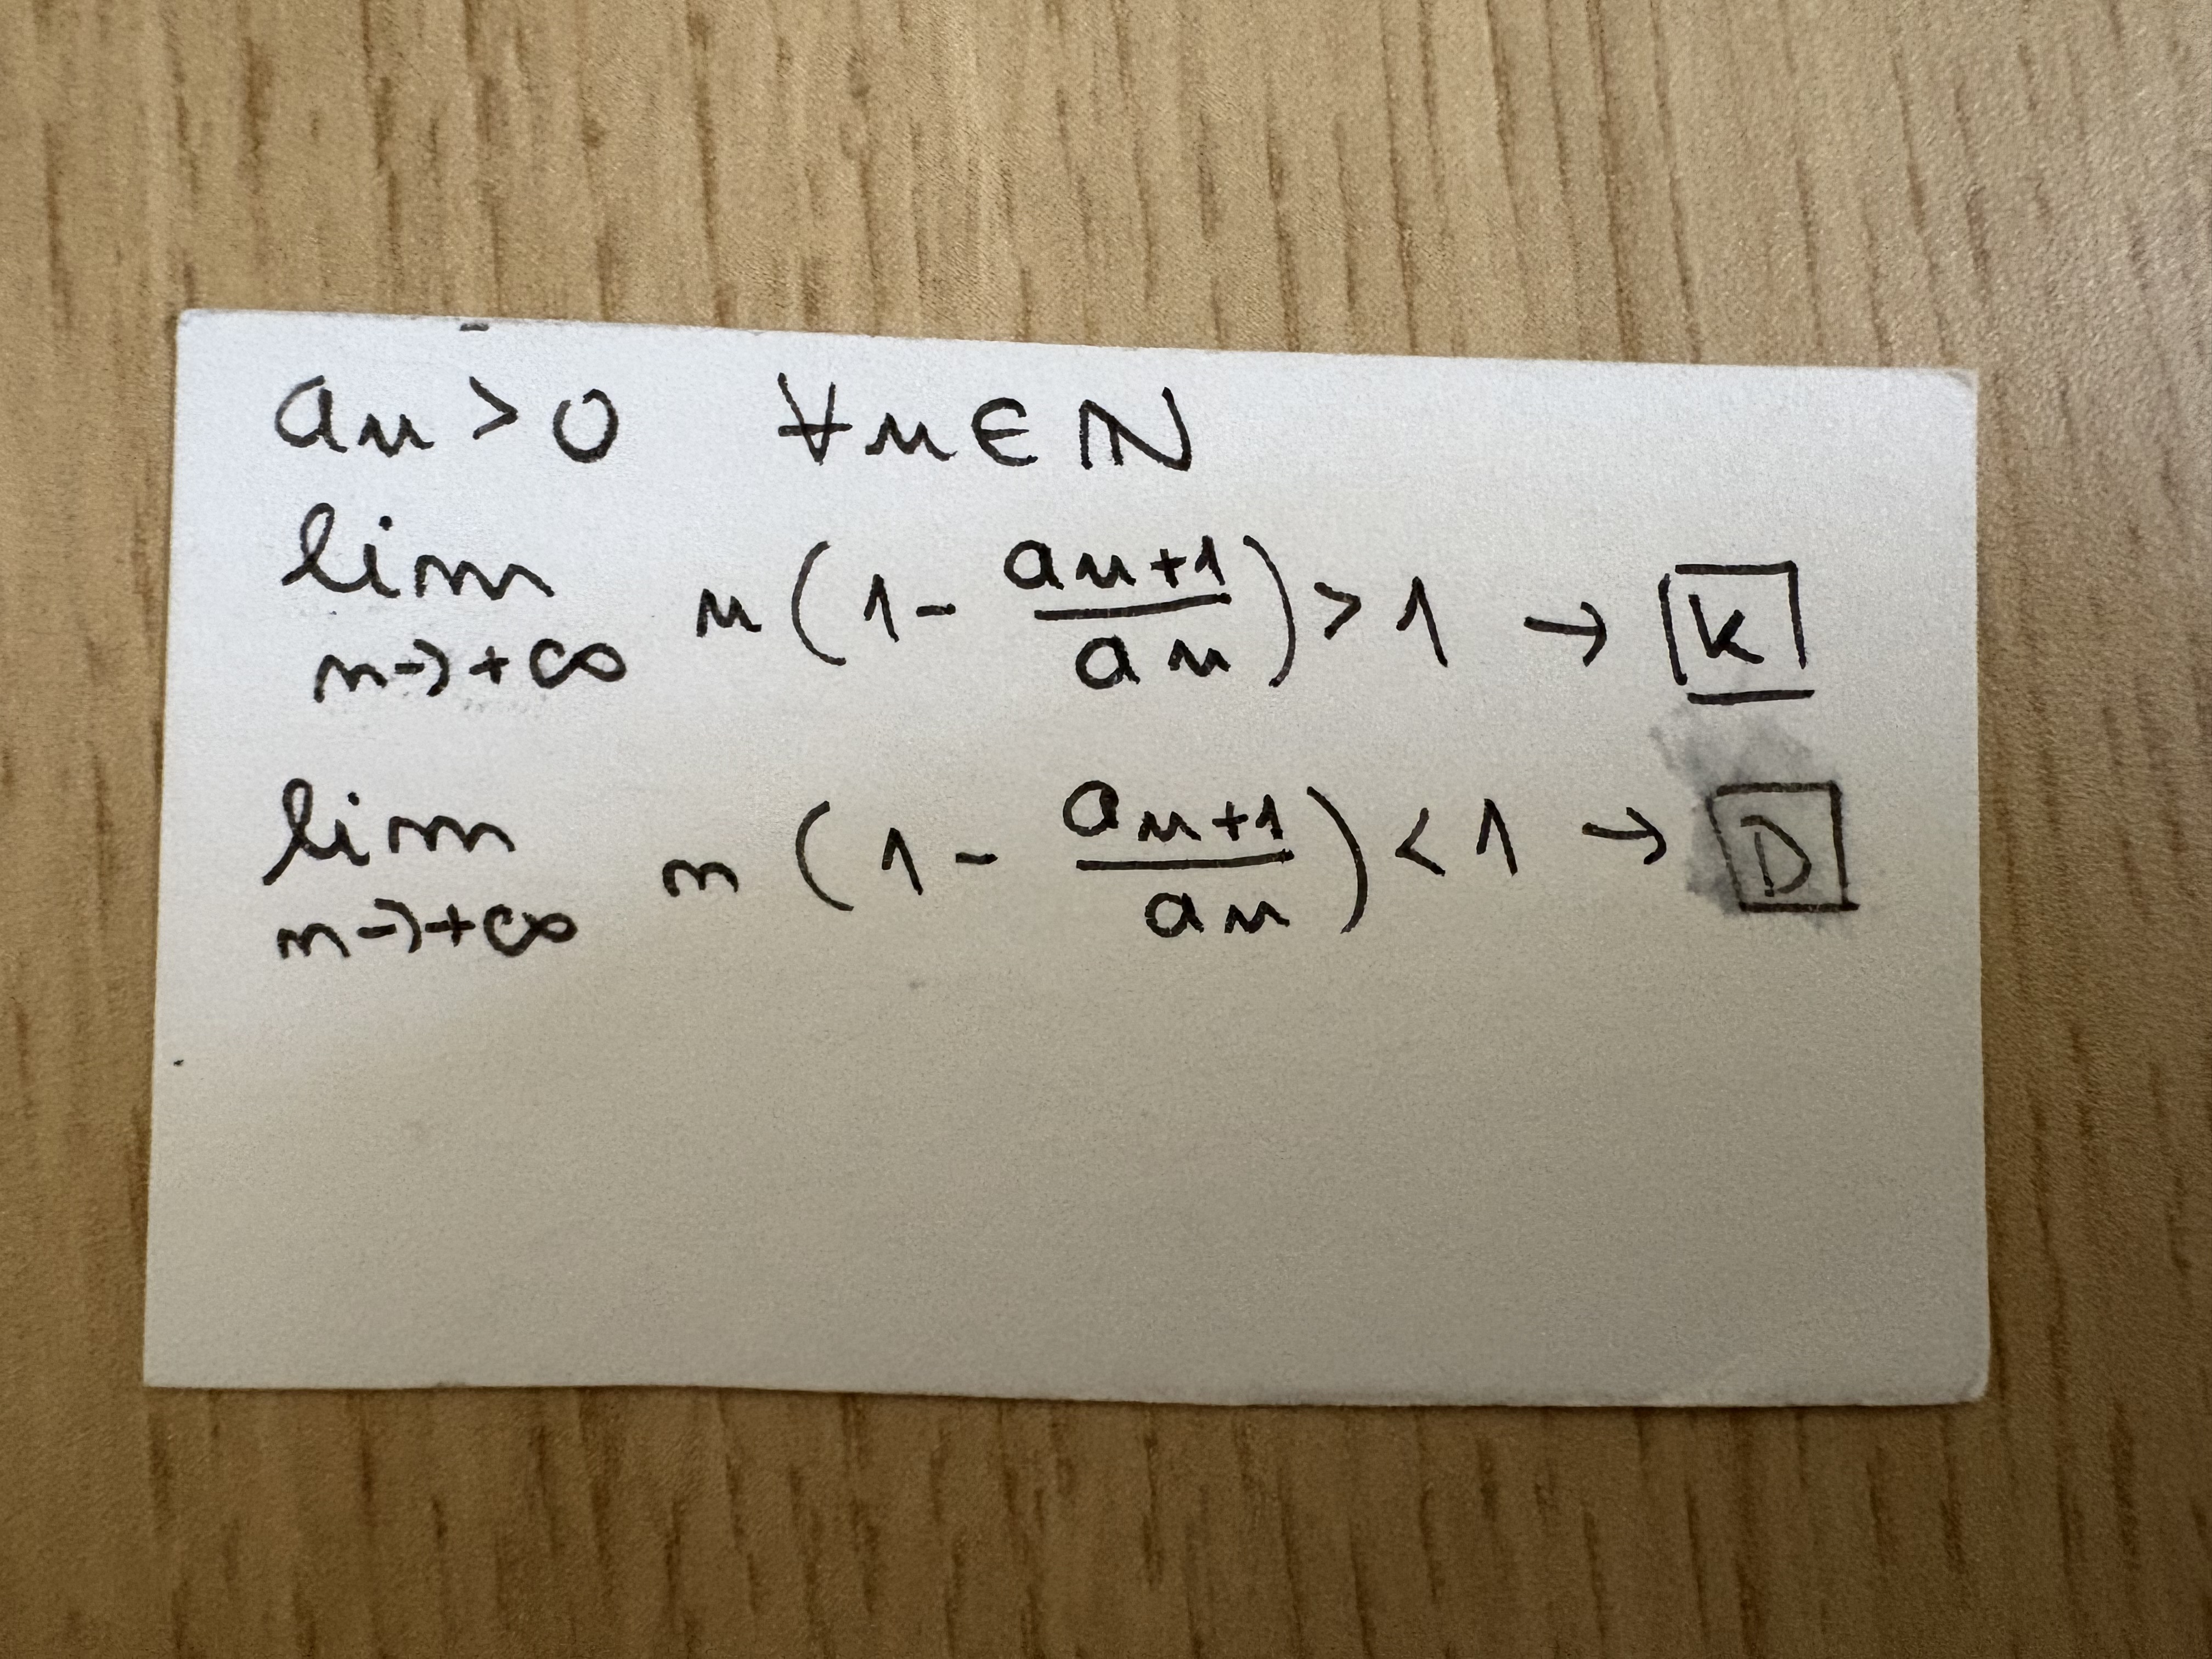 an > 0 ∀n ∈ ℕ
lim n→+∞ n(1 - an+1/an) > 1 → K
lim n→+∞ n(1 - an+1/an) < 1 → D